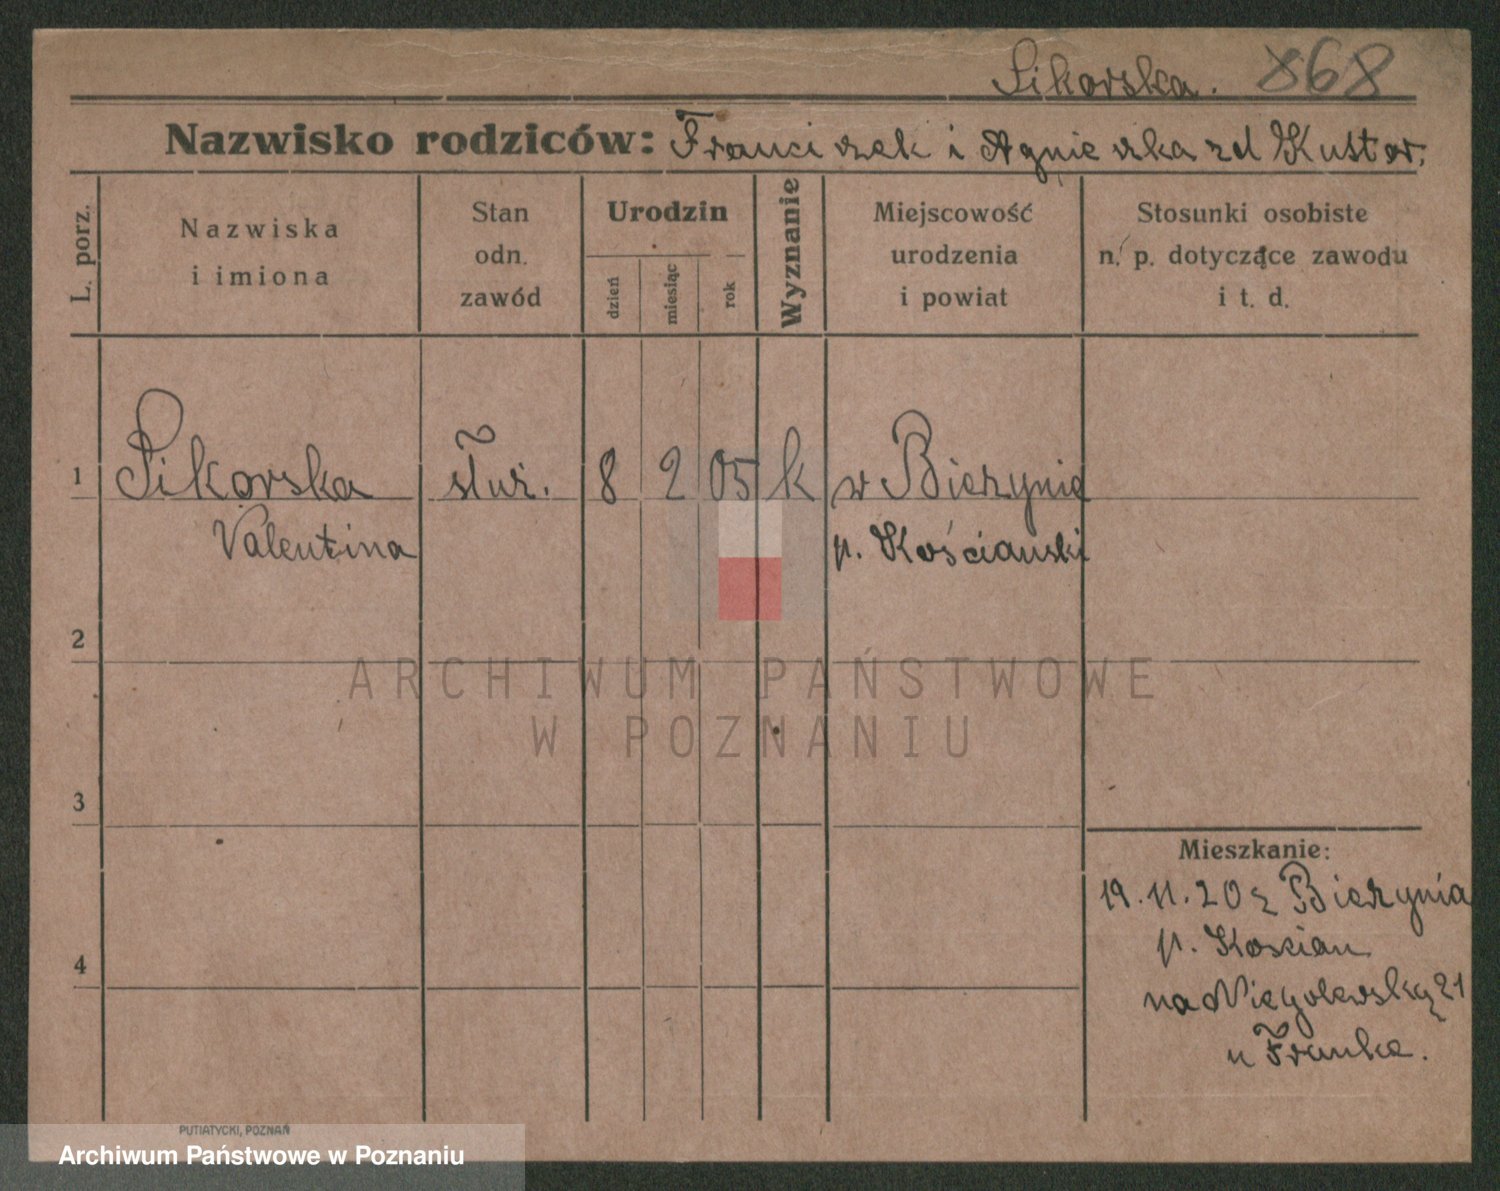 Sikorska. 868
Nazwisko rodziców: Franciszek i Agnieszka zd Kustor.
L. porz.
Nazwiska
i imiona
Stan
odn.
zawód
Urodzin
dzień
miesiąc
rok
Wyznanie
Miejscowość
urodzenia
i powiat
Stosunki osobiste
n. p. dotyczące zawodu
i t. d.
1 Sikorska służ. 8 2 05 k w Bieżynie
Valentina p. Kościański
2
3
4
Mieszkanie:
19.11.20 z Bieżynia
p. Koscian
na Niegolewską 21
u Franke.
ARCHIWUM PAŃSTWOWE
W POZNANIU
PUTIATYCKI, POZNAŃ
Archiwum Państwowe w Poznaniu